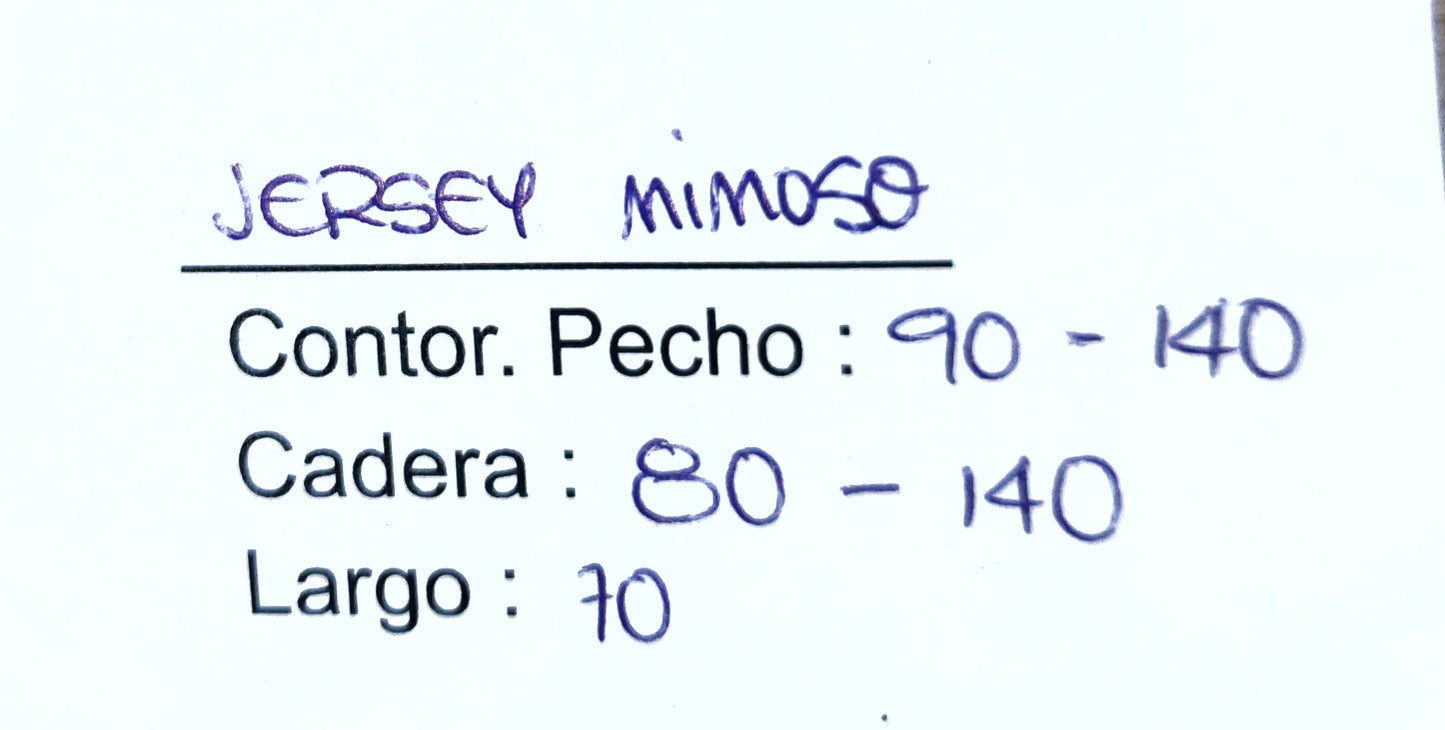 JERSEY MIMOSO
Contor. Pecho : 90 - 140
Cadera : 80 - 140
Largo : 70